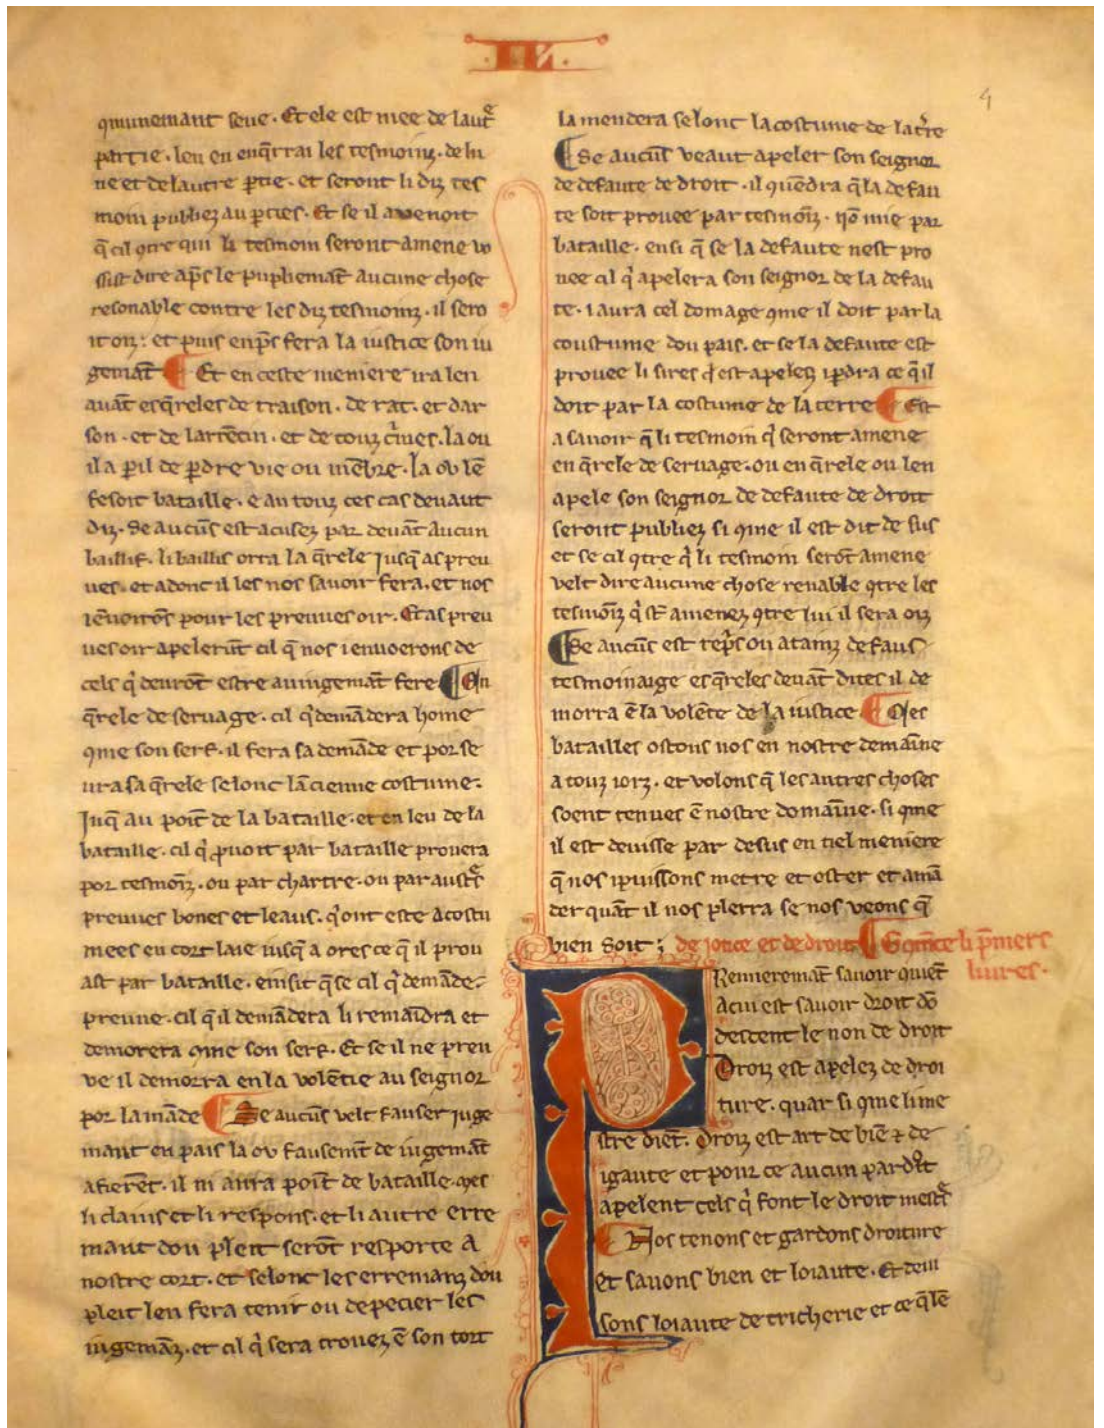 IIII
4
qmunemant seue . Et ele est niee de laut͛
partie . len en enq̄rrai les tesmoinz . de lu
ne et de lautre ꝑtie . et seront li diz tes
moin publiez au ꝑties . Et se il auenoit
q̄ cil ꝯtre qui li tesmoin seront amene vo
ssist dire ap̄s le puplemāt aucune chose
resonable contre les diz tesmoinz . il sero
it oiz : et puis enp̄s fera la iustice son iu
gemāt ¶ Et en ceste meniere ira len
auāt es q̄reles de traison . de rat . et dar
son . et de larrēcin . et de touz c̓mes . la ou
il a ꝑil de ꝑdre vie ou mēbre . la ou lē
fesoit bataille . e an touz ces cas deuant
diz . Se aucūs est acusez par deuāt aucun
baillif . li baillis orra la q̄rele iusq̄ as preu
ues . et adonc il les nos sauoir fera . et nos
iēuoirōs pour les preuues oir . Et as preu
ues oir apelerūt cil q̄ nos i enuoerons de
cels q̓ deurōt estre au iugemāt fere ¶ En
q̄rele de seruage . cil q̓ demādera home
ꝯme son serf . il fera sa demāde et por se
ura sa q̄rele selonc lācienne costume .
Juq̄ au poīt de la bataille . et en leu de la
bataille . cil q̓ ꝓuoit par bataille prouera
por tesmoīz . ou par chartre . ou par autr͛s
preuues bones et leaus . q̓ ont este acostu
mees eu cort laie iusq̄ a ores ce q̄ il prou
ast par bataille . einsit q̄ se cil q̓ demāde .
preuue . cil q̄ il demādera li remaīdra et
demorera ꝯme son serf . Et se il ne preu
ve il demorra en la volētie au seignor
por la māde ¶ Se aucūs velt fauser iuge
mant en pais la ou fausemēt de iugemāt
afierēt . il ni aura poīt de bataille . mes
li claim et li respons . et li autre erre
mant dou pleit serōt resporte a
nostre cort . et selonc les erremanz dou
pleit len fera tenir ou depecier les
iugemāz . et cil q̓ sera trouez ē son tort
la mendera selonc la costume de la t͛re
¶ Se aucūs veaut apeler son seignor
de defaute de droit . il quēdra q̄ la defau
te soit prouee par tesmoīz . nō mie par
bataille . ensi q̄ se la defaute nest pro
uee cil q̓ apelera son seignor de la defau
te . i aura cel domage ꝯme il doit par la
coustume dou pais . et se la defaute est
prouee li sires q̓ est apelez i ꝑdra ce q̄ il
doit par la costume de la terre ¶ Est
a sauoir q̄ li tesmoin q̓ seront amene
en q̄rele de seruage . ou en q̄rele ou len
apele son seignor de defaute de droit
seront publiez si ꝯme il est dit de sus
et se cil ꝯtre q̓ li tesmoin serōt amene
velt dire aucune chose renable ꝯtre les
tesmoīz q̓ sōt amenez ꝯtre lui il sera oiz
¶ Se aucūs est rep̄s ou atainz de faus
tesmoinaige es q̄reles deuāt dites il de
morra ē la volēte de la iustice ¶ Ces
batailles ostons nos en nostre demaīne
a touz iorz . et volons q̄ les autres choses
soent tenues ē nostre domaīne . si ꝯme
il est deuisse par desus en tiel meniere
q̄ nos i puissons metre et oster et amā
der quāt il nos plerra se nos veons q̄
bien soit ; de jotice et de droit ¶ Comēce li p̄miers
liures .
PRemieremāt sauoir ꝯuiēt
a cui est sauoir droit dō
descent le non de droit
Droiz est apelez de droi
ture . quar si ꝯme li me
stre diēt . Droiz est art de biē ⁊ de
igaute et pour ce aucun par drōt
apelent cels q̓ font le droit mest͛s
¶ Nos tenons et gardons droiture
et sauons bien et loiaute . Et deui
sons loiaute de tricherie et ce q̄ lē